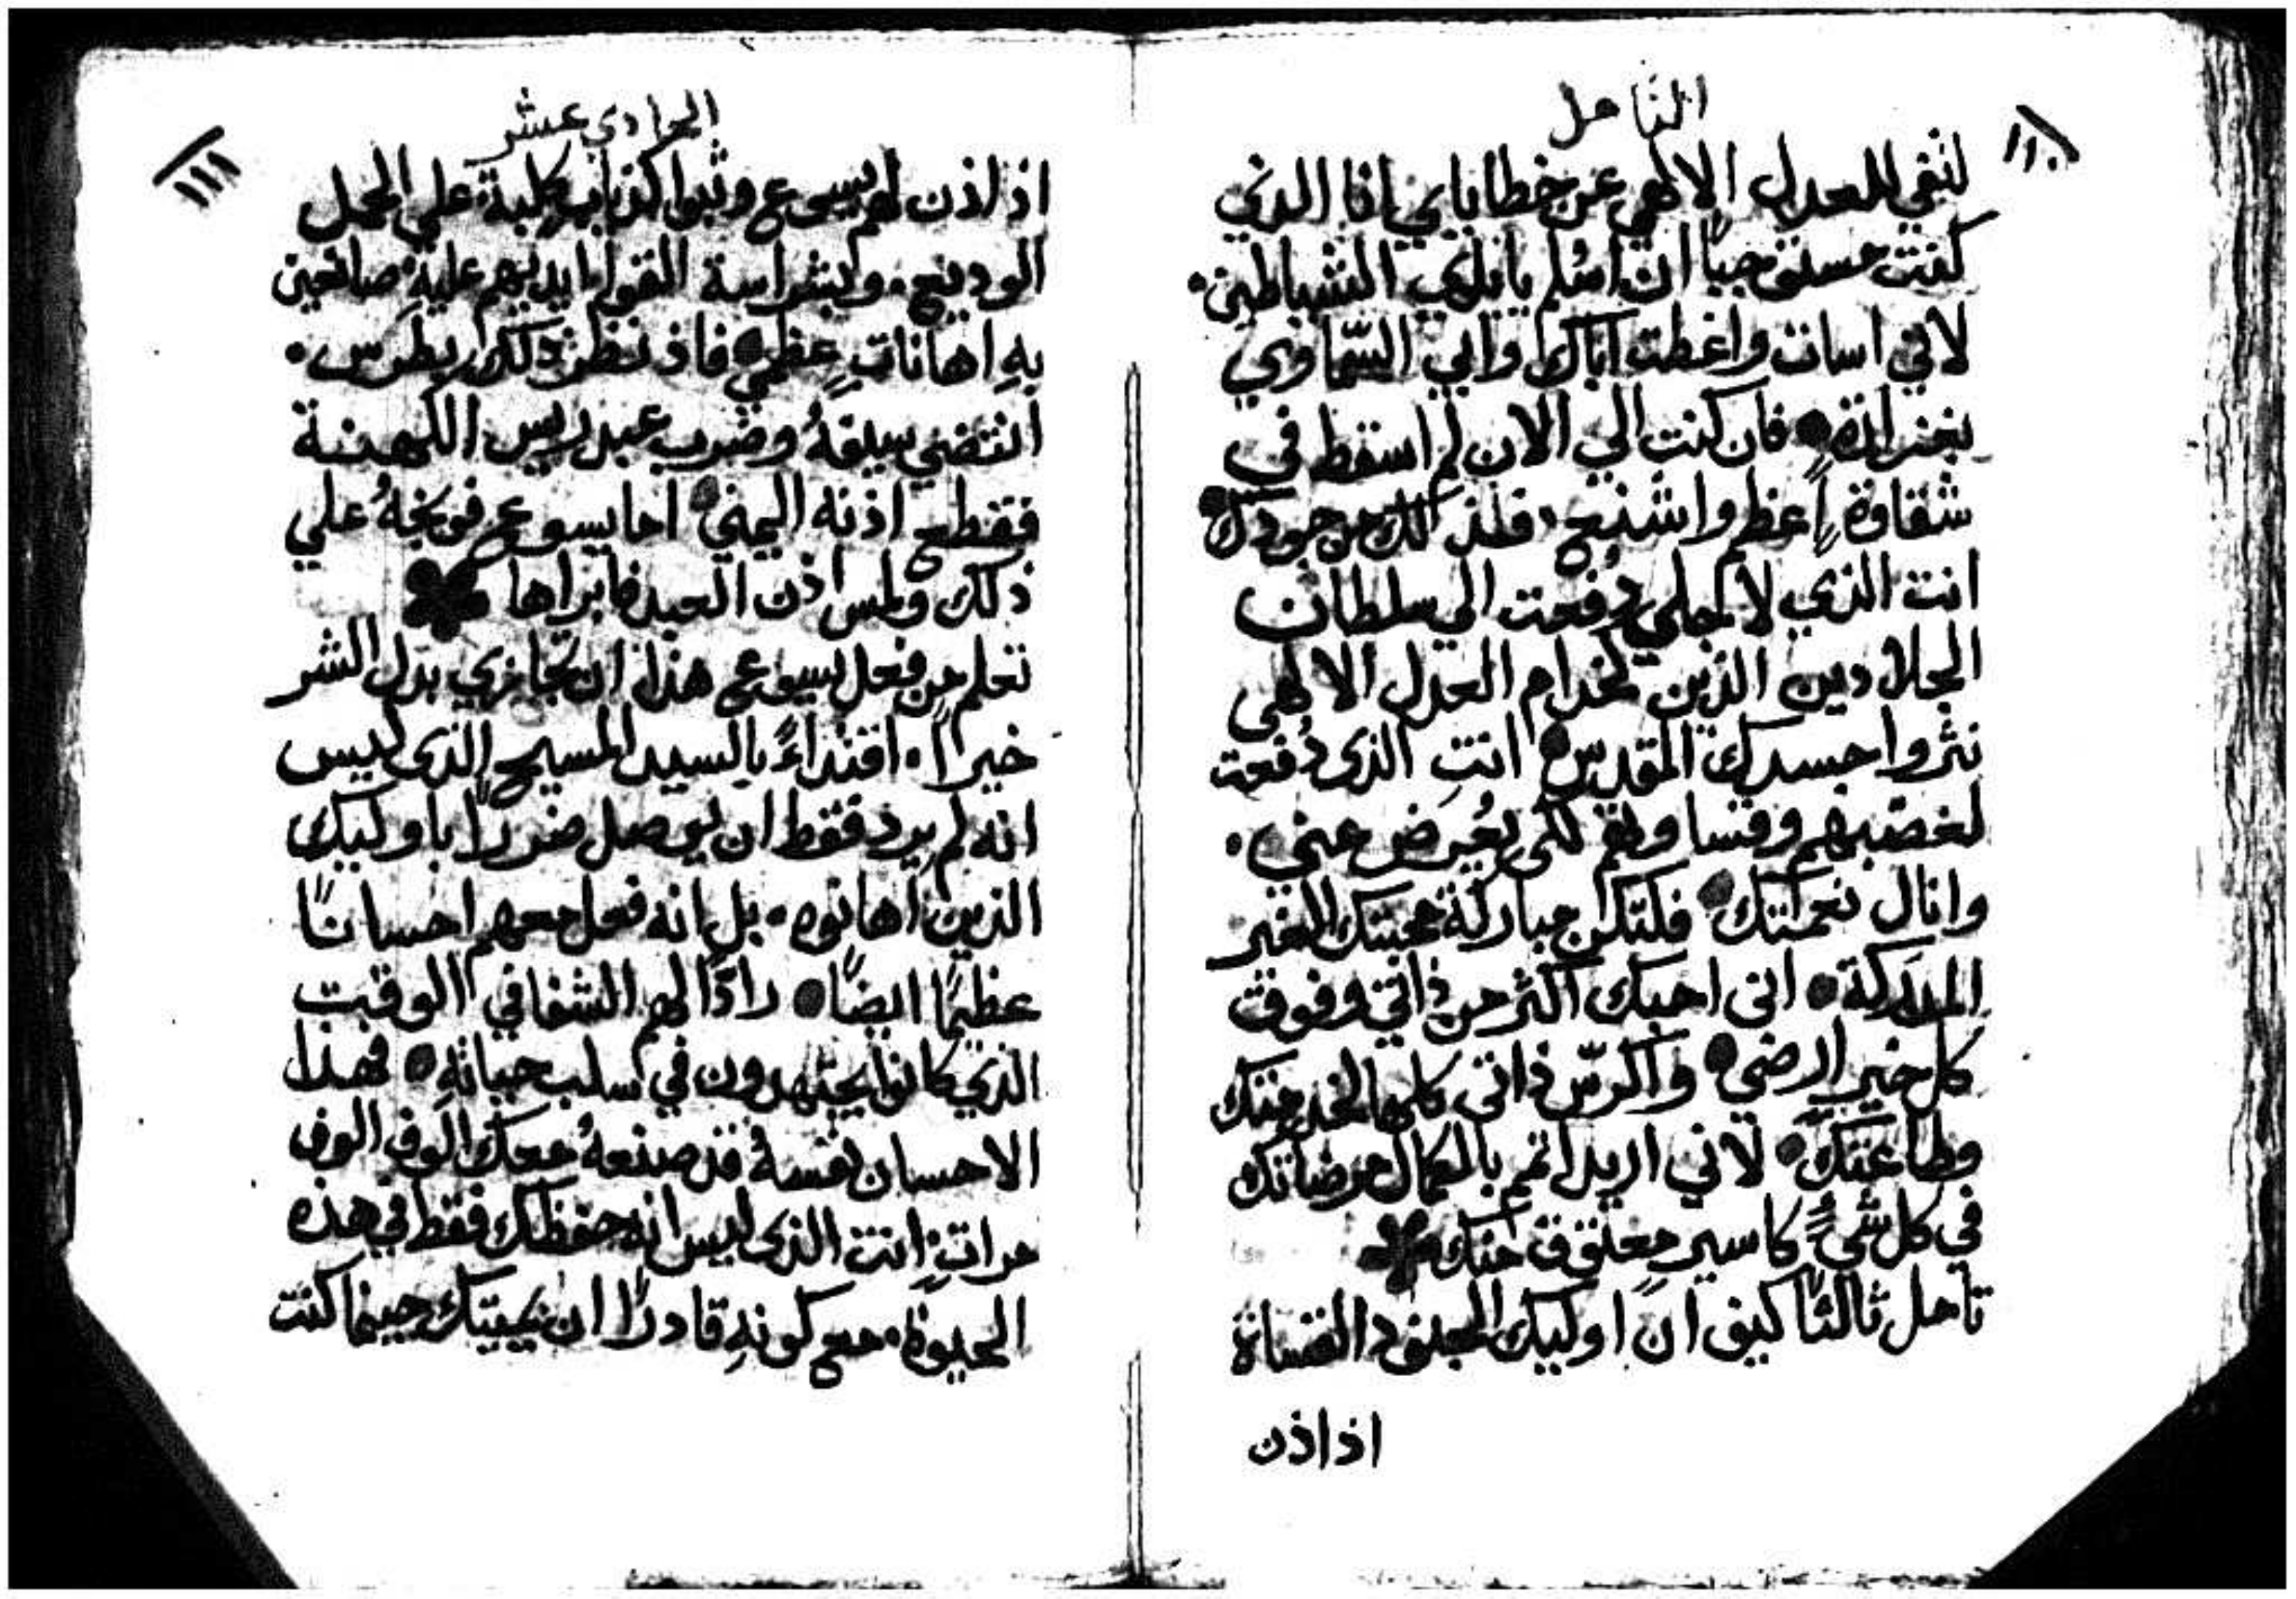 التامل
١١٠
لتفي للعدل الالهي عن خطاياي انا الذي
كنت مستوجباً ان اسلم بايدي الشياطين.
لاني اسات واغظت اباك وابي السّماوي
بغزارة فان كنت الي الان لم اسقط في
شقاوةٍ اعظم واشنع. فلذلك من جودك
انت الذي لاجلي دُفعت الي سلطان
الجلادين الذين كخدام العدل الالهي
نثروا جسدك المقدس انت الذي دُفعت
لغضبهم وقساوتهم لكي يُعرض عني.
وانال نعمتك فلتكن مباركة محبتك الغير
المدركة اني احبك اكثر من ذاتي وفوق
كل خير ارضي واكرّس ذاتي كلها لخدمتك
وطاعتك لاني اريد اتمم بالكمال مرضاتك
في كل شيً كاسير معتوق منك
تامل ثالثاً كيف انّ اوليك الجنود القساة
اذ اذن
الحادي عشر
١١١
اذ اذن لهم يسوع وثبوا كذياب كلبة علي الحمل
الوديع. وبشراسة القوا ايديهم عليه صانعين
بهِ اهاناتٍ عظمي فاذ نظر ذلك بطرس.
انتضي سيفهُ وضرب عبد ريس الكهنة
فقطع اذنه اليمني اما يسوع فوبخهُ علي
ذلك ولمس اذن العبد فابراها
تعلم من فعل يسوع هذا ان تجازي بدل الشر
خيراً. اقتداءً بالسيد المسيح الذي ليس
انه لم يرد فقط ان يوصل ضرراً باوليك
الذين اهانوه. بل انه فعل معهم احساناً
عظيماً ايضاً رادّاً لهم الشفا في الوقت
الذي كانوا يجتهدون في سلب حياتهِ فهذا
الاحسان نفسهُ قد صنعهُ معك الوف الوف
مراتٍ انت الذي ليس انه حفظك فقط في هذه
الحيوة. مع كونهِ قادراً ان يميتك حينما كنت